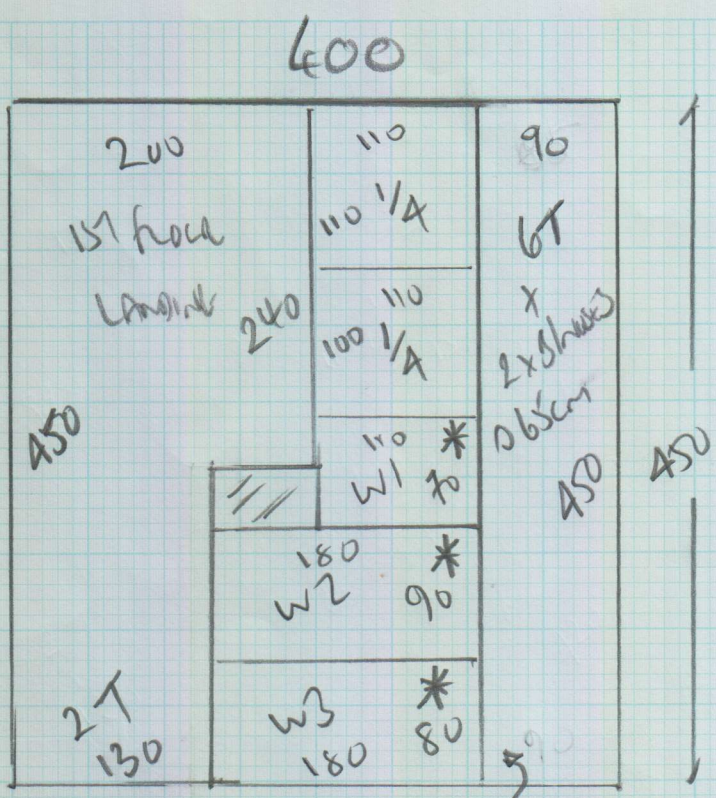 400
200
1ST FLOOR
LANDING
240
450
2T
130
110
110 1/4
110
100 1/4
110 *
W1 70
180 *
W2 90
W3 *
180 80
90
6T
x
2 x
065cm
450
450